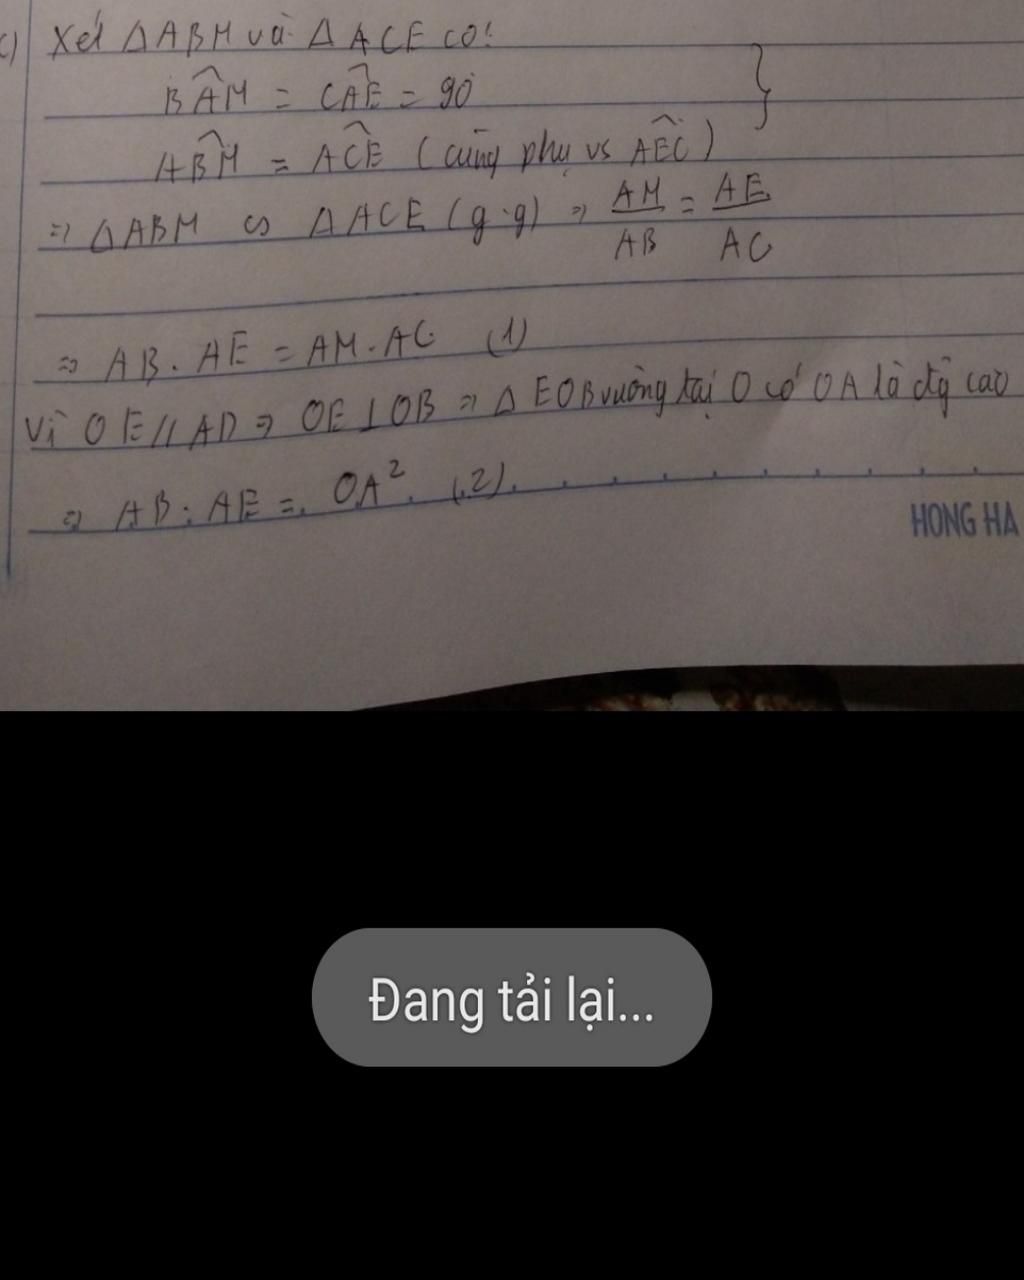 c) Xét ΔABM và ΔACE có:
BÂM = CÂE = 90°
AB̂M = AĈE (cùng phụ vs AÊC)
=> ΔABM ∽ ΔACE (g.g) => AM/AB = AE/AC
=> AB.AE = AM.AC (1)
Vì OE//AD => OE⊥OB => ΔEOB vuông tại O có OA là đg cao
=> AB.AE = OA² (2)
HONG HA
Đang tải lại...